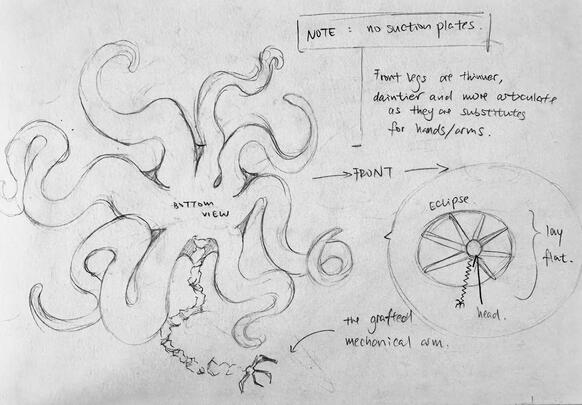 NOTE : no suction plates.
Front legs are thinner,
daintier and more articulate
as they are substitutes
for hands/arms.
FRONT
BOTTOM
VIEW
Eclipse
lay
flat.
head.
the grafted
mechanical arm.